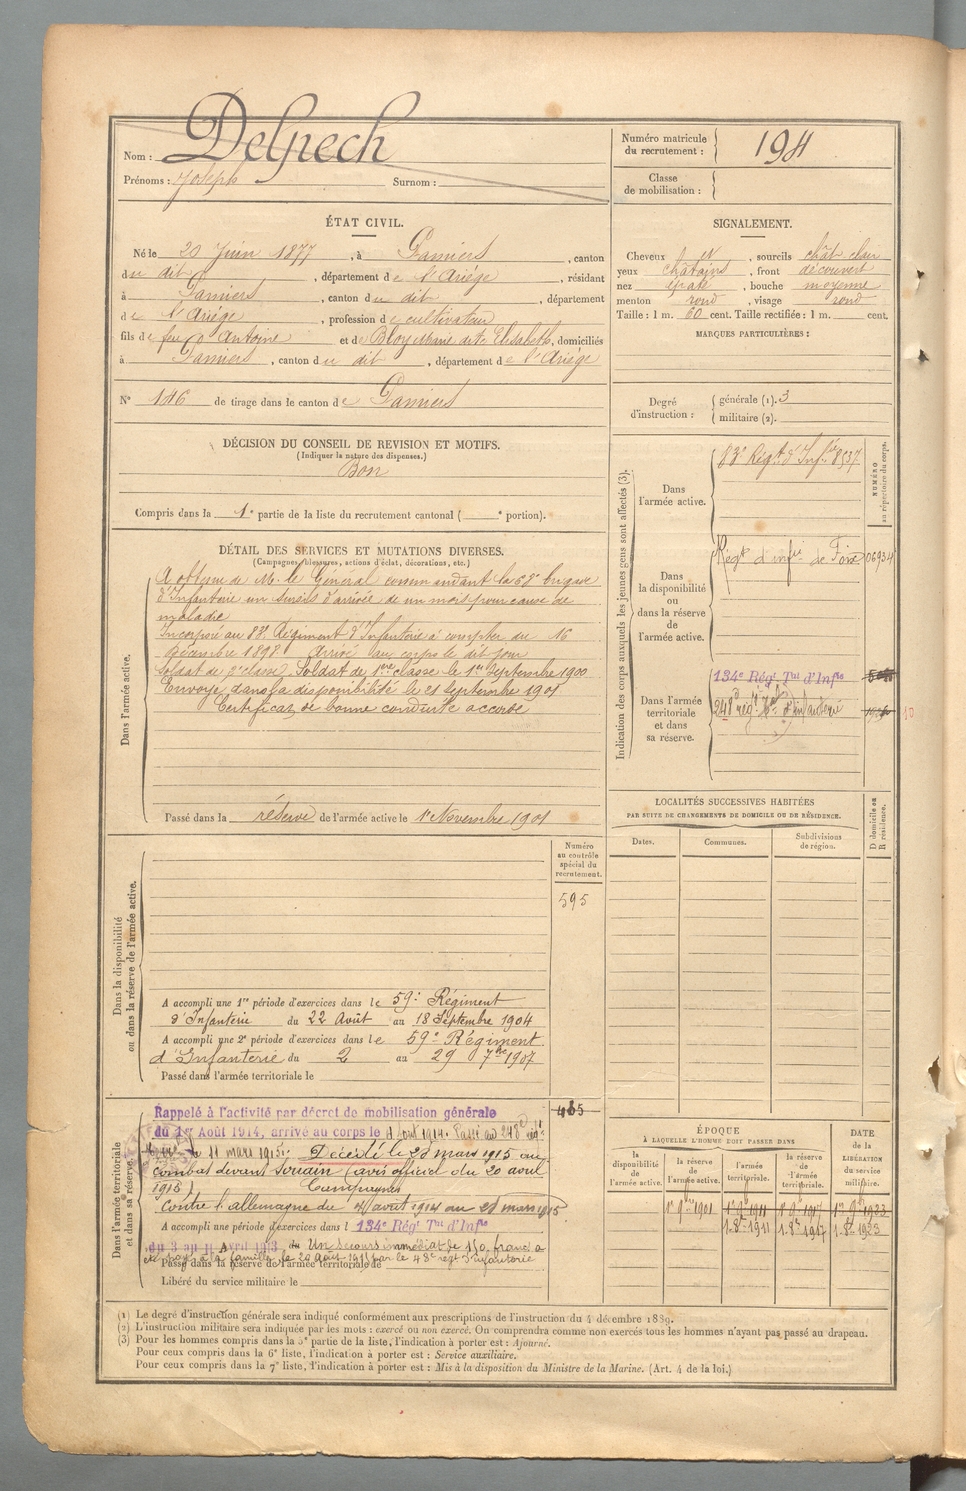 Nom : Delpech
Prénoms : Joseph Surnom :
Numéro matricule du recrutement : 194
Classe de mobilisation :
ÉTAT CIVIL.
Né le 20 Juin 1877, à Pamiers, canton
du dit, département de l'Ariège, résidant
à Pamiers, canton du dit, département
de l'Ariège, profession de cultivateur
fils de feu Antoine et de Bloy Marie dite Elisabeth, domiciliés
à Pamiers, canton du dit, département de l'Ariège
N° 146 de tirage dans le canton de Pamiers
SIGNALEMENT.
Cheveux et, sourcils chât clair
yeux châtains, front découvert
nez épaté, bouche moyenne
menton rond, visage rond
Taille : 1 m. 60 cent. Taille rectifiée : 1 m. cent.
MARQUES PARTICULIÈRES :
Degré d'instruction : générale (1). 3
militaire (2).
DÉCISION DU CONSEIL DE REVISION ET MOTIFS.
(Indiquer la nature des dispenses.)
Bon
Compris dans la 1e partie de la liste du recrutement cantonal ( e portion).
DÉTAIL DES SERVICES ET MUTATIONS DIVERSES.
(Campagnes, blessures, actions d'éclat, décorations, etc.)
Dans l'armée active.
A obtenu de Mr le Général commandant la brigade
d'Infanterie un sursis d'arrivée de un mois pour cause de
maladie
Incorporé au 83e Régiment d'Infanterie à compter du 16
Décembre 1898. Arrivé au corps le dit jour
Soldat de 2e classe. Soldat de 1ère classe le 1er Septembre 1900
Envoyé dans la disponibilité le 21 Septembre 1901
Certificat de bonne conduite accordé
Passé dans la réserve de l'armée active le 1er Novembre 1901
Indication des corps auxquels les jeunes gens sont affectés (3).
NUMÉRO au répertoire du corps.
Dans l'armée active. 83e Régt d'Infie 8537
Dans la disponibilité ou dans la réserve de l'armée active. Régt d'infie de Foix 06934
Dans l'armée territoriale et dans sa réserve. 134e Régt Tal d'Infie
248e régt d'infanterie
LOCALITÉS SUCCESSIVES HABITÉES
PAR SUITE DE CHANGEMENTS DE DOMICILE OU DE RÉSIDENCE.
Dates. Communes. Subdivisions de région. D domicile ou R résidence.
Dans la disponibilité ou dans la réserve de l'armée active.
Numéro au contrôle spécial du recrutement.
595
A accompli une 1re période d'exercices dans le 59e Régiment
d'Infanterie du 22 Août au 18 Septembre 1904
A accompli une 2e période d'exercices dans le 59e Régiment
d'Infanterie du 2 au 29 7bre 1907
Passé dans l'armée territoriale le
Dans l'armée territoriale et dans sa réserve.
485
Rappelé à l'activité par décret de mobilisation générale
du 1er Août 1914, arrivé au corps le 4 Aout 1914. Passé au 248e régt
le 11 mars 1915. Décédé le 2d mars 1915 au
combat devant Souain (avis officiel du 20 avril
1915) Campagnes
Contre l'allemagne du 4 août 1914 au 2d mars 1915
A accompli une période d'exercices dans l 134e Régt Tal d'Infie
du 3 au 11 Avril 1913 Un secours immédiat de 150 francs a
été payé à la famille le 20 août 1915 par le 48e régt d'infanterie
Passé dans la réserve de l'armée territoriale le
Libéré du service militaire le
ÉPOQUE
À LAQUELLE L'HOMME DOIT PASSER DANS
la disponibilité de l'armée active. la réserve de l'armée active. l'armée territoriale. la réserve de l'armée territoriale.
DATE de la LIBÉRATION du service militaire.
1er 9bre 1901 1er 9bre 1911 1er 9bre 1917 1er 9bre 1923
1.8bre 1911 1.8bre 1917 1.8bre 1923
(1) Le degré d'instruction générale sera indiqué conformément aux prescriptions de l'instruction du 4 décembre 1889.
(2) L'instruction militaire sera indiquée par les mots : exercé ou non exercé. On comprendra comme non exercés tous les hommes n'ayant pas passé au drapeau.
(3) Pour les hommes compris dans la 5e partie de la liste, l'indication à porter est : Ajourné.
Pour ceux compris dans la 6e liste, l'indication à porter est : Service auxiliaire.
Pour ceux compris dans la 7e liste, l'indication à porter est : Mis à la disposition du Ministre de la Marine. (Art. 4 de la loi.)